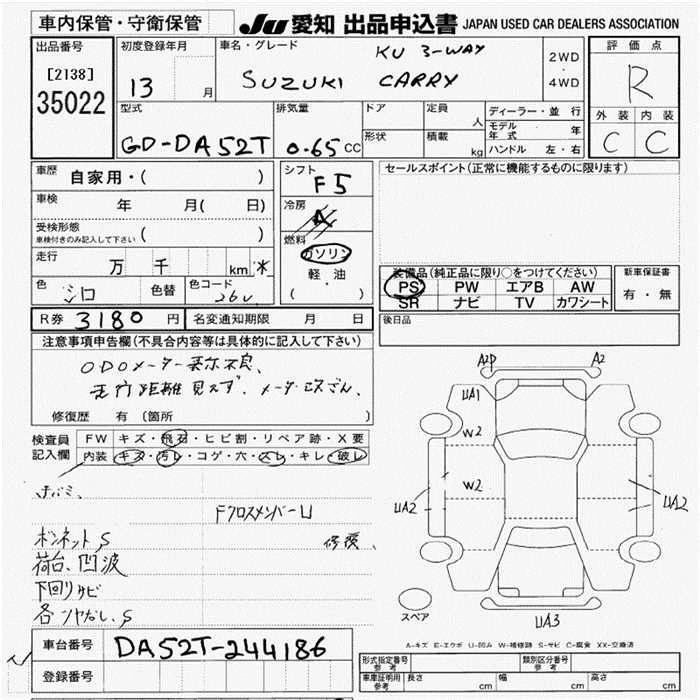 車内保管・守衛保管
JU 愛知 出品申込書 JAPAN USED CAR DEALERS ASSOCIATION
出品番号
[2138]
35022
初度登録年月
13 月
車名・グレード
KU 3-WAY
SUZUKI CARRY
2WD
・
4WD
評価点
R
外装 内装
C C
型式
GD-DA52T
排気量
0.65 CC
ドア
形状
定員
人
積載
kg
ディーラー・並 行
モデル年式 年
ハンドル 左・右
車歴
自家用・( )
車検
年 月( 日)
受検形態
車検付きのみ記入して下さい ( )
走行
万 千 km ・ 米
色
シロ
色替
色コード
26U
シフト
F5
冷房
A
燃料
ガソリン
軽 油
( )
セールスポイント(正常に機能するものに限ります)
装備品(純正品に限り○をつけてください)
PS PW エアB AW
SR ナビ TV カワシート
新車保証書
有・無
R券 3180 円
名変通知期限 月 日
後日品
注意事項申告欄(不具合内容等は具体的に記入して下さい)
ODOメーター表示不良、
走行距離見えず、メーター改ざん、
修復歴 有 (箇所 )
検査員
記入欄
FW キズ・飛石・ヒビ割・リペア跡・X要
内装 キズ・汚レ・コゲ・穴・スレ・キレ・破レ
FクロスメンバーU
修復、
ボンネットS
荷台、凹波
下回りサビ
A2P
A2
UA1
W2
W2
UA2
UA2
UA3
スペア
A-キズ E-エクボ U-凹み W-補修跡 S-サビ C-腐食 XX-交換済
車台番号 DA52T-244186
登録番号
形式指定番号
参考
類別区分番号
参考
車庫証明用
参考
長さ cm
幅 cm
高さ cm